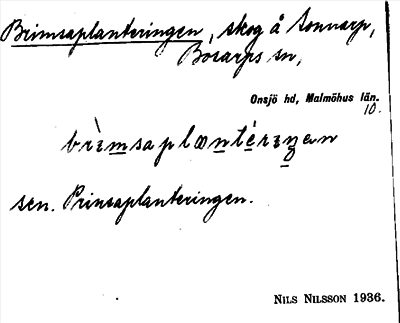 Brimsaplanteringen, skog å Sonnarp,
Bosarps sn,
Onsjö hd, Malmöhus län.
10.
brìmsaplæntéreŋen
sen. Prinsaplanteringen.
NILS NILSSON 1936.